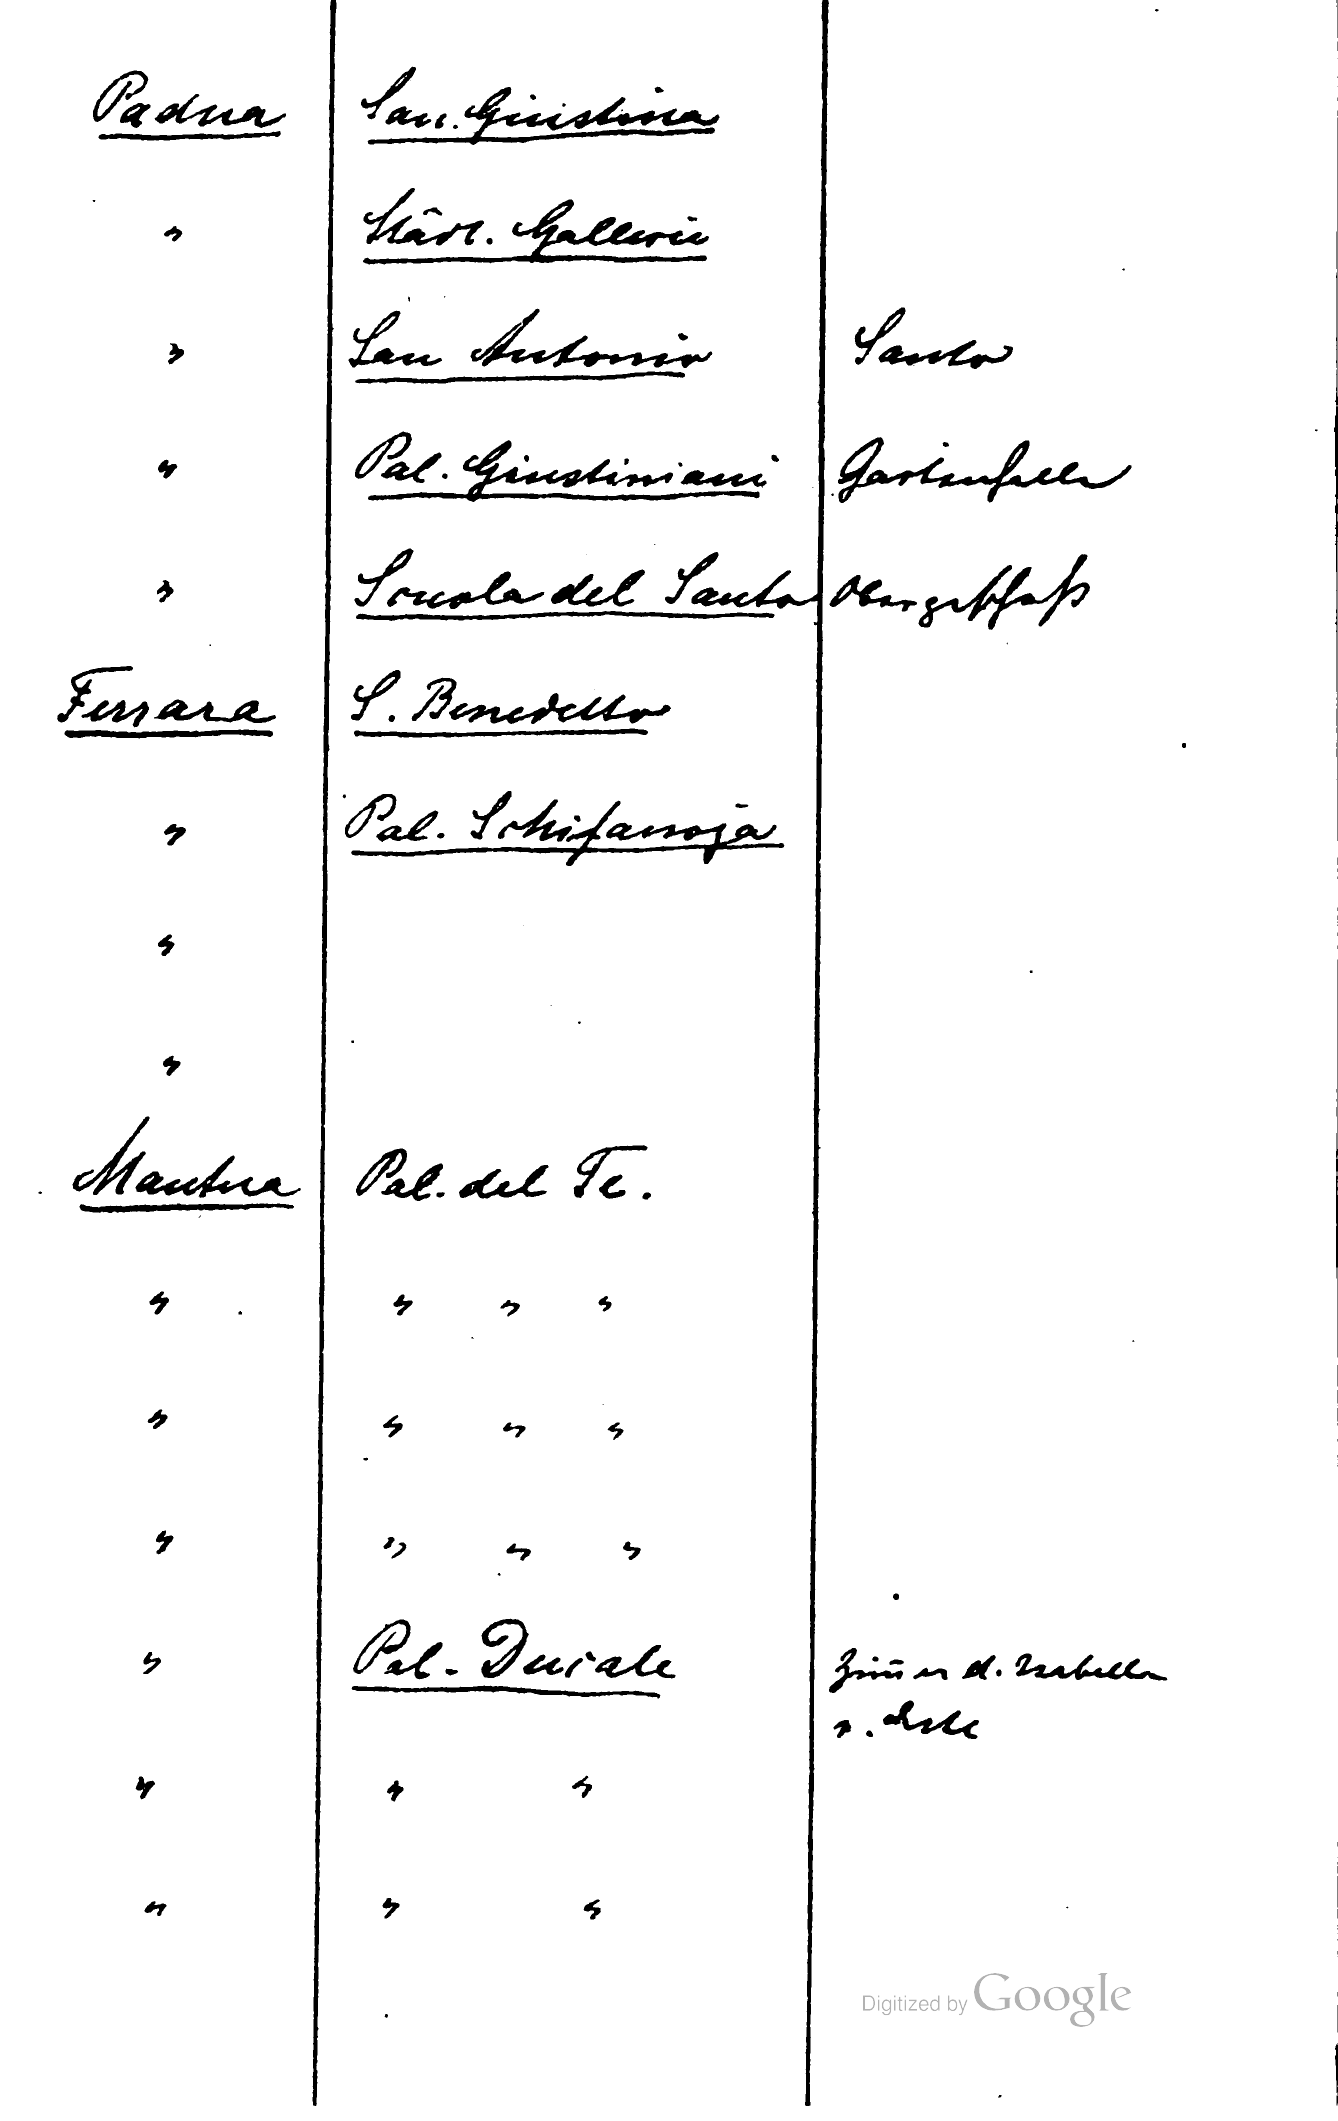 Padua San. Giustina
" Städt. Gallerie
" San Antonio Santo
" Pal. Giustiniani Gartenhalle
" Scuola del Santo Obergeschoß
Ferrara S. Benedetto
" Pal. Schifanoja
"
"
Mantua Pal. del Te.
" " " "
" " " "
" " " "
" Pal. Ducale Zim̅er d. Isabella
v. Este
" " "
" " "
Digitized by Google